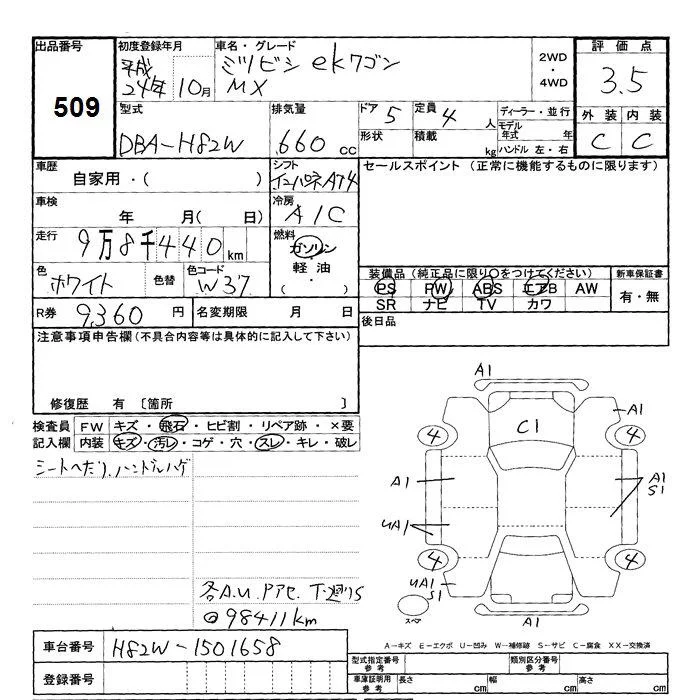 出品番号
509
初度登録年月
平成
24年 10月
車名・グレード
ミツビシ ekワゴン
MX
2WD
・
4WD
評価点
3.5
外装 内装
C C
型式
DBA-H82W
排気量
.660 cc
ドア 5
形状
定員 4 人
積載 kg
ディーラー・並行
モデル
年式 年
ハンドル 左・右
車歴
自家用・( )
シフト
インパネAT4
セールスポイント (正常に機能するものに限ります)
車検
年 月( 日)
冷房
A/C
走行
9万8千440km
燃料
ガソリン
軽油
・
( )
色
ホワイト
色替
色コード
W37
装備品 (純正品に限り○をつけてください)
PS PW ABS エアB AW
SR ナビ TV カワ
新車保証書
有・無
R券 9360 円
名変期限 月 日
後日品
注意事項申告欄 (不具合内容等は具体的に記入して下さい)
修復歴 有 〔箇所 〕
検査員
記入欄
FW キズ・飛石・ヒビ割・リペア跡・×要
内装 キズ・汚レ・コゲ・穴・スレ・キレ・破レ
シートへたり、ハンドルハゲ
各A.U.Pアセ.下廻りS
@98411km
A1
C1
A1
4
4
A1
A1
S1
UA1
4
4
UA1
S1
スペア
A1
A-キズ E-エクボ U-凹み W-補修跡 S-サビ C-腐食 XX-交換済
車台番号 H82W-1501658
登録番号
型式指定番号
参考
類別区分番号
参考
車庫証明用
参考
長さ cm
幅 cm
高さ cm